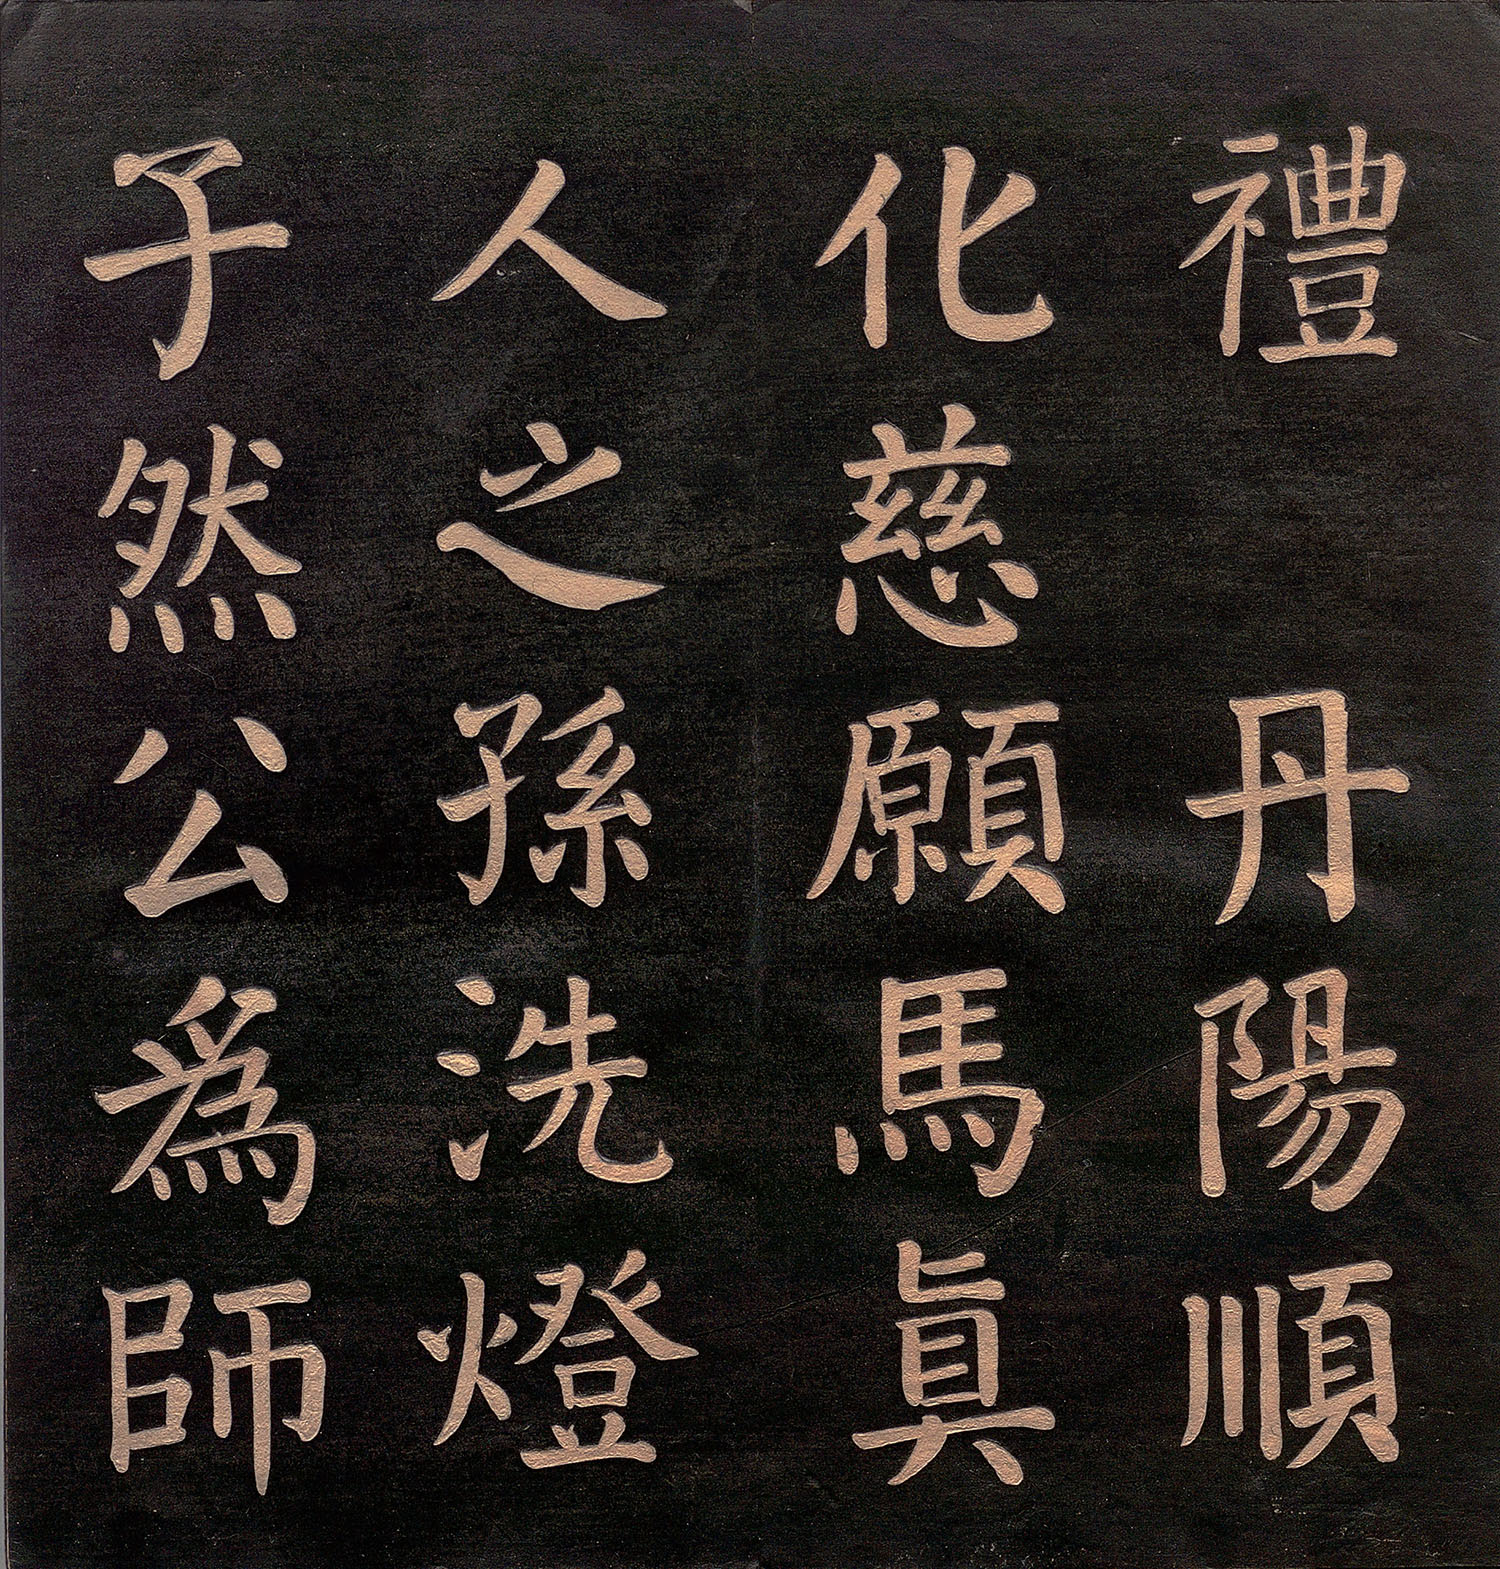 禮　丹陽順
化慈願馬眞
人之孫洗燈
子然公為師